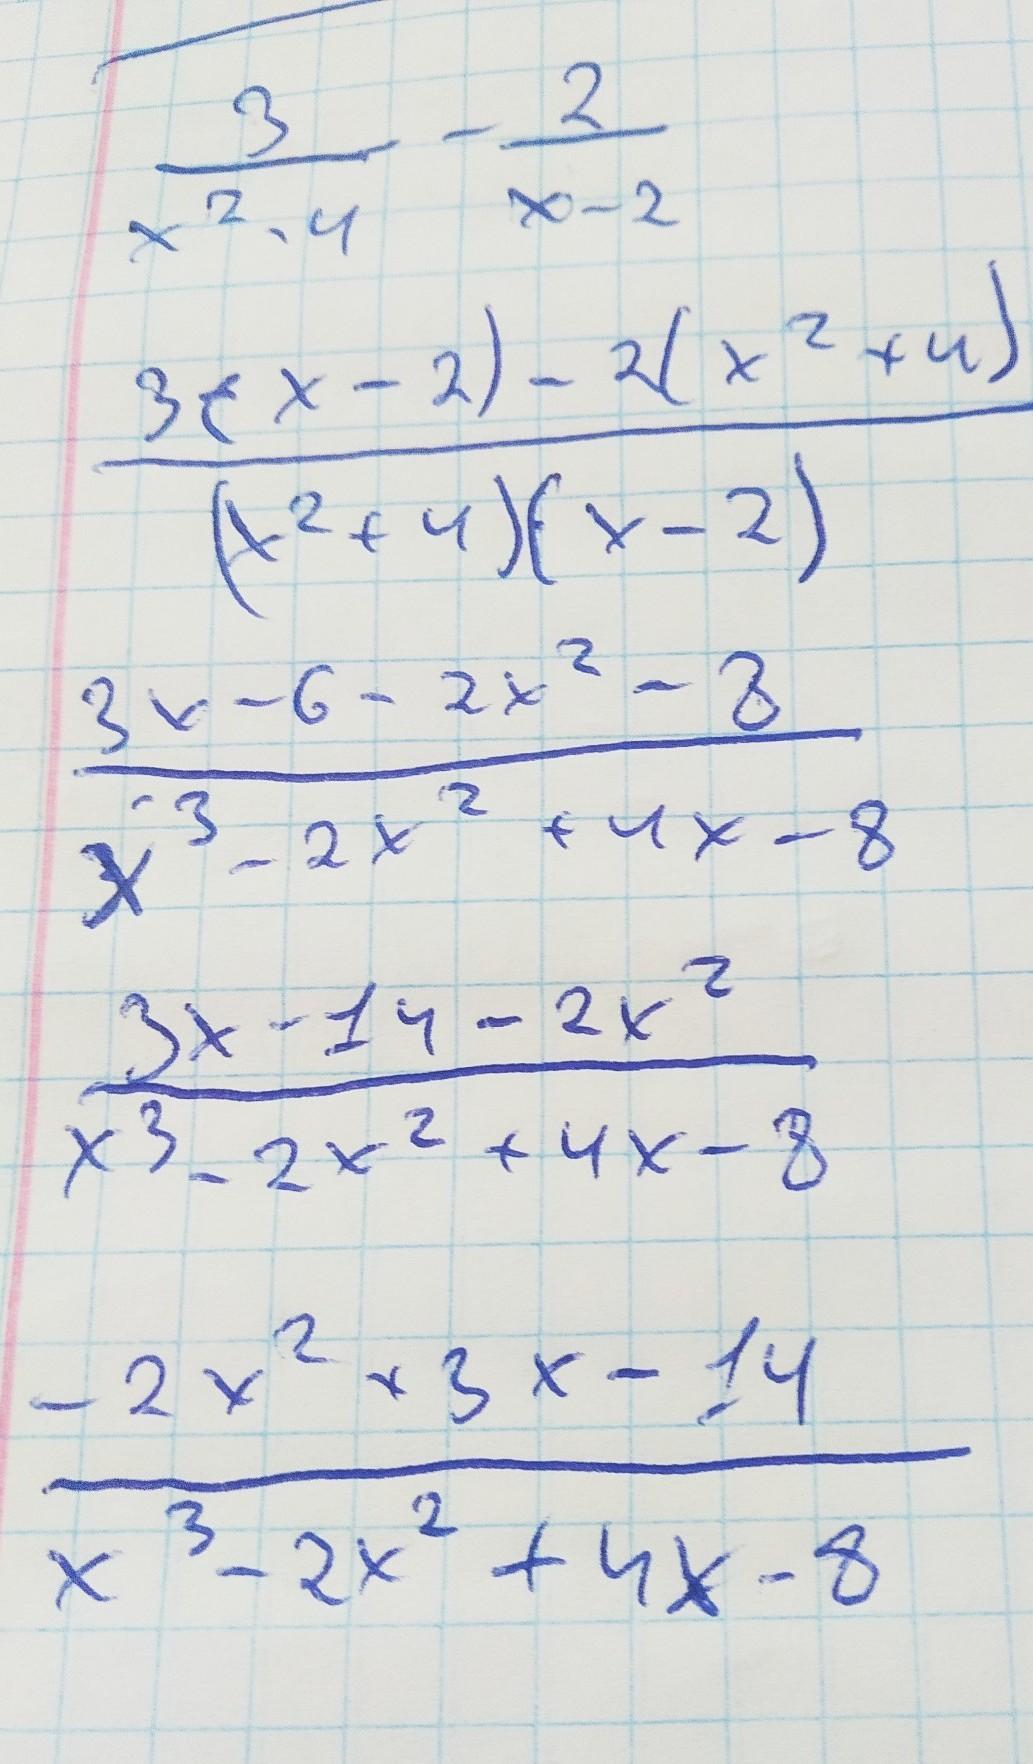 3/(x² - 4) - 2/(x-2)
(3(x-2) - 2(x²+4))/((x²+4)(x-2))
(3x-6-2x²-8)/(x³-2x²+4x-8)
(3x-14-2x²)/(x³-2x²+4x-8)
(-2x²+3x-14)/(x³-2x²+4x-8)